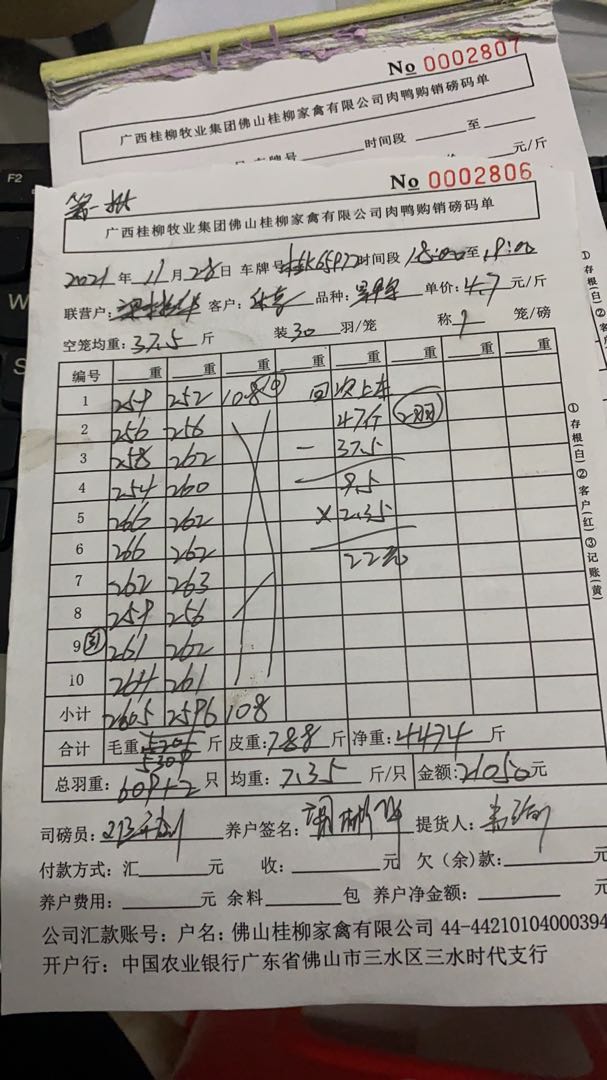 No 0002807
广西桂柳牧业集团佛山桂柳家禽有限公司肉鸭购销磅码单
车牌号 时间段 至
元/斤
F2
第一批
No 0002806
广西桂柳牧业集团佛山桂柳家禽有限公司肉鸭购销磅码单
2021年11月28日 车牌号 时间段18:00至19:00
联营户: 客户: 品种: 单价:4.7元/斤
空笼均重:37.5斤 装30羽/笼 称 笼/磅
编号 重 重 重 重 重 重 重 重
1 259 252 108 ⑩ 回 次上车
2 256 256 47斤
3 258 262 — 37.5
4 254 260 9.5
5 266 262 × 2.35
6 266 262 22元
7 262 263
8 259 256
9 31 261 262
10 264 261
小计 2605 2596 108
合计 毛重: 5309 斤 皮重:788斤 净重:4474斤
总羽重:609+2只 均重:7.35斤/只 金额:21050元
司磅员: 养户签名: 提货人:
付款方式:汇 元 收: 元 欠(余)款: 元
养户费用: 元 余料 包 养户净金额: 元
公司汇款账号:户名:佛山桂柳家禽有限公司 44-44210104000394
开户行:中国农业银行广东省佛山市三水区三水时代支行
①存根(白)②客户(红)③记账(黄)
①存根(白)②客